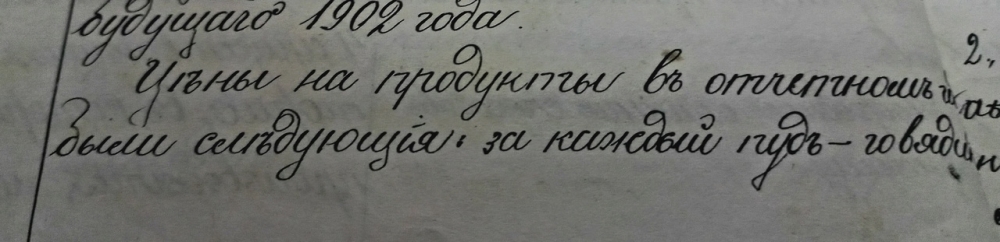 будущаго 1902 года.
Цѣны на продукты въ отчетномъ
были слѣдующія: за каждый пудъ – говядин
2,